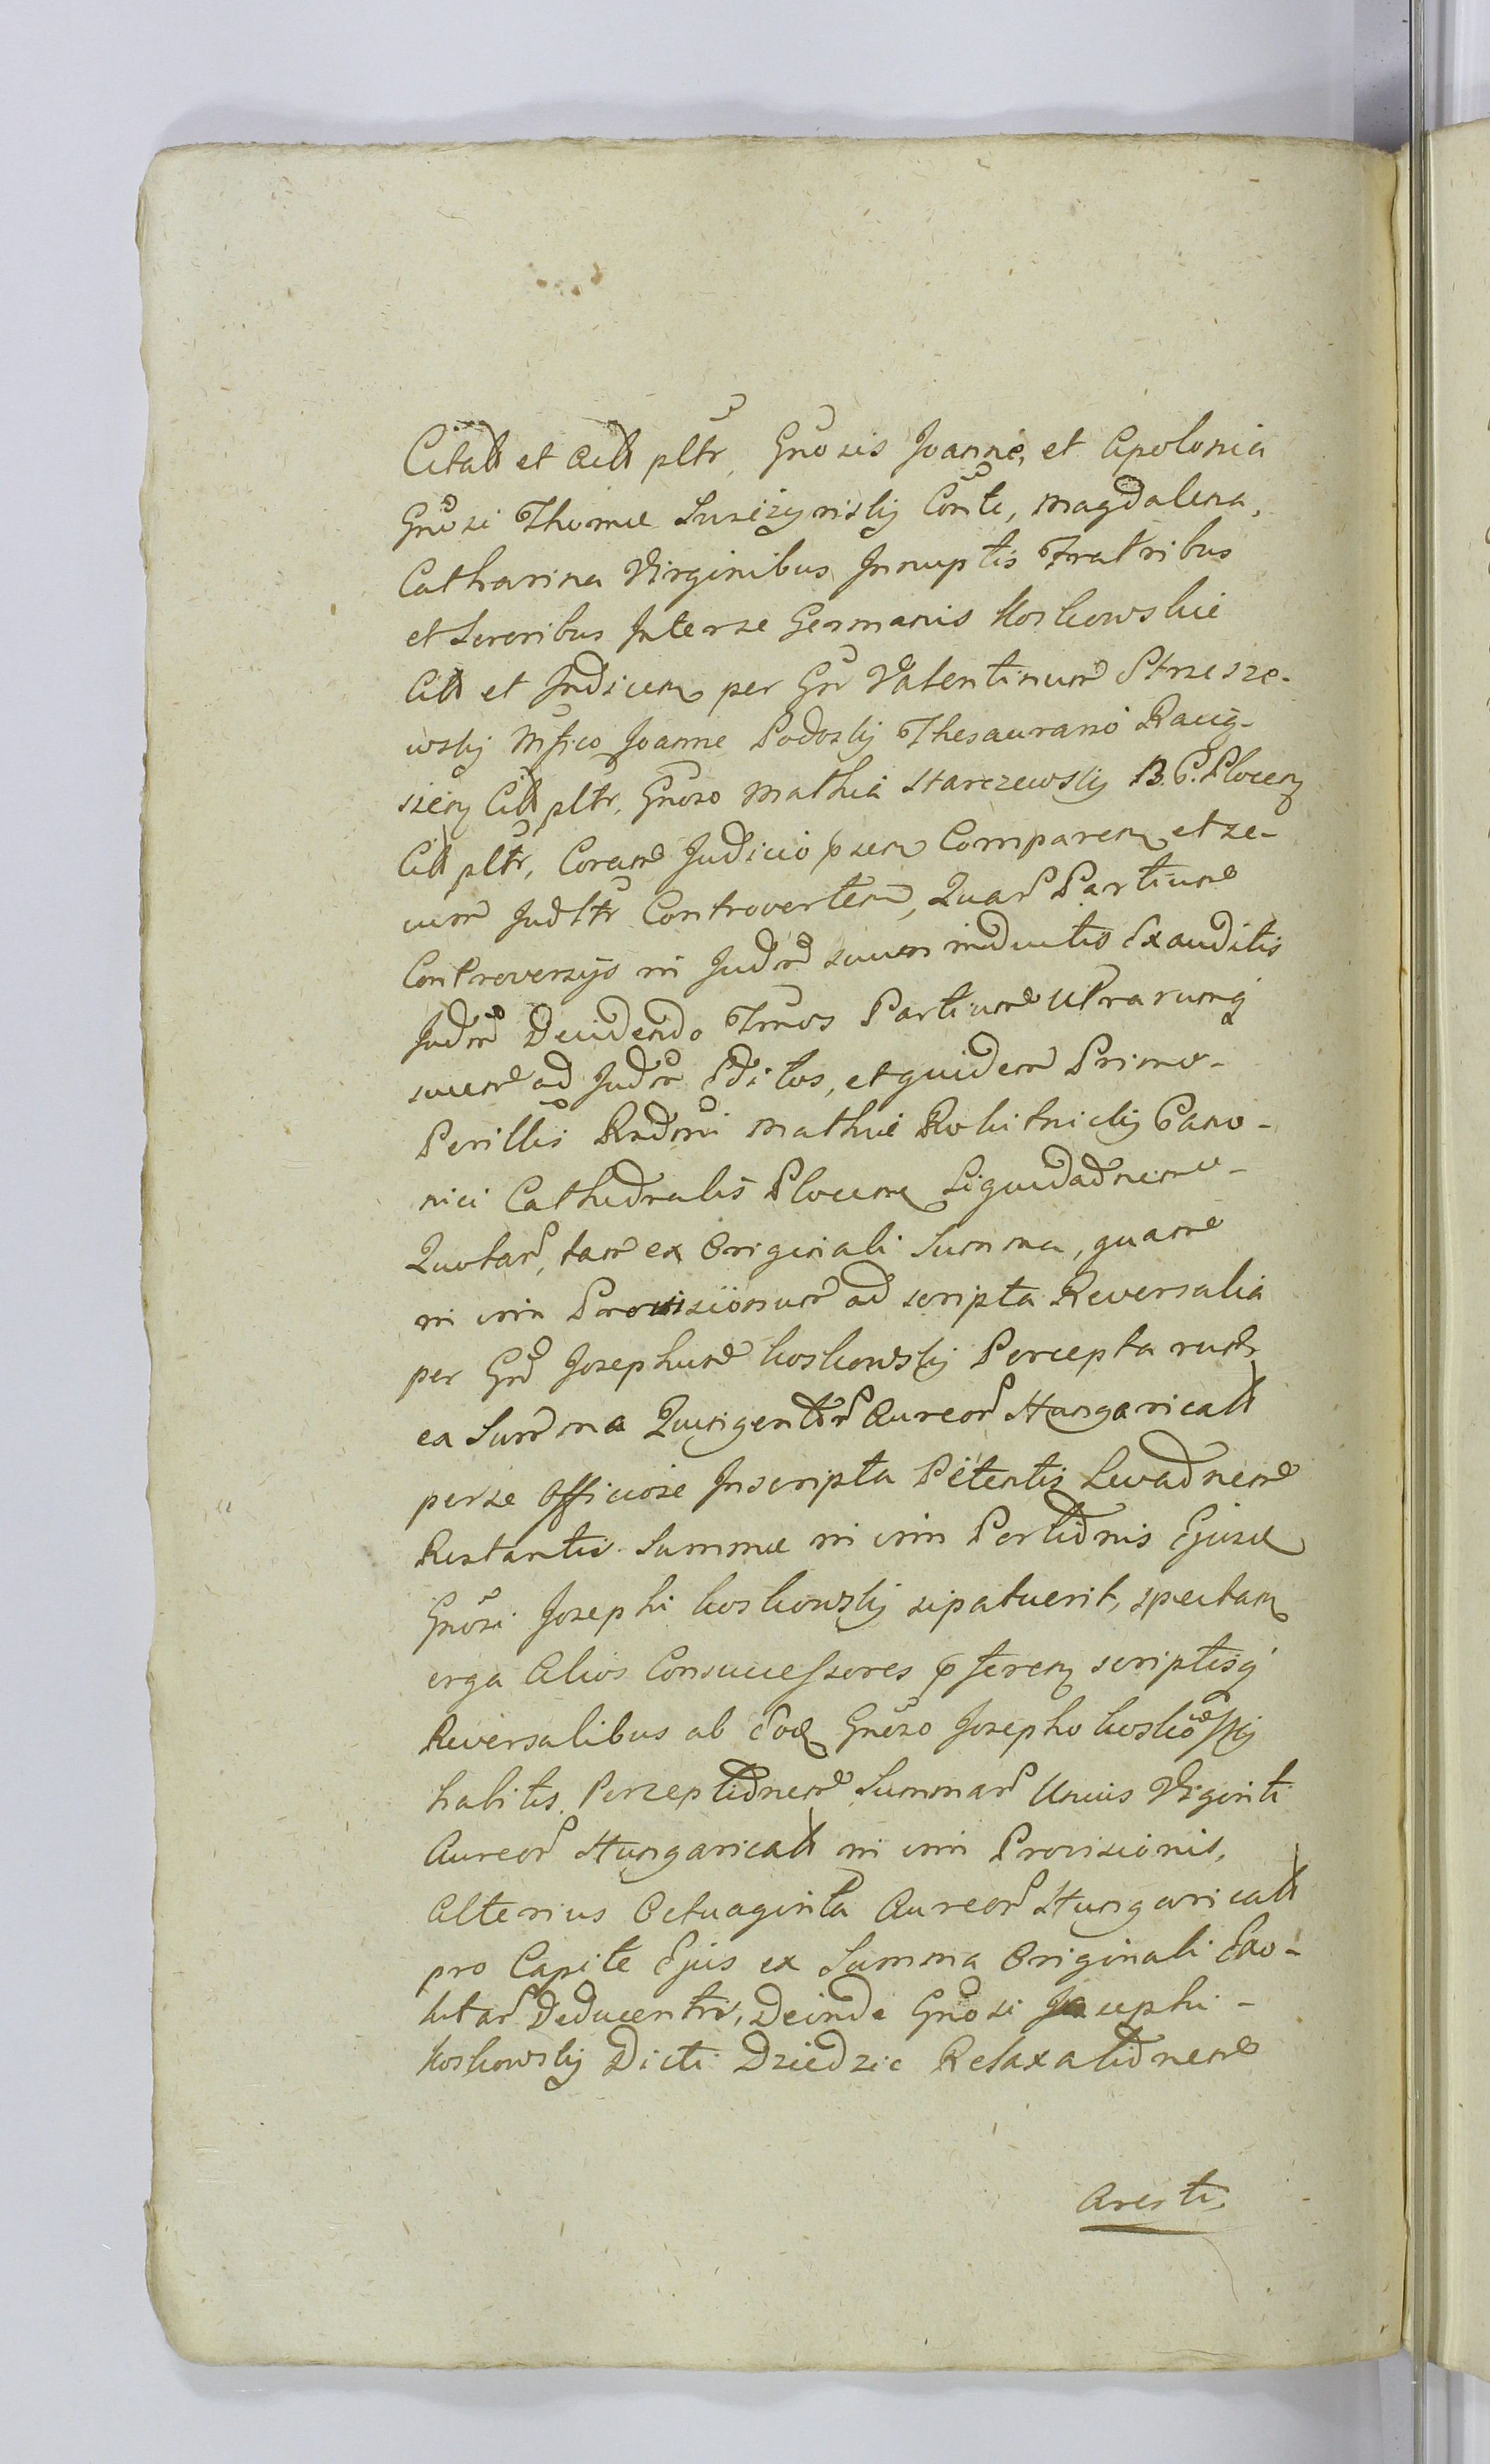 Citat et Citt pltr, Gnosis Joanne, et Apolonia
Gnosi Thomae Suscizynsky Conte, Magdalena,
Catharina Virginibus Innuptis Fratribus
et Sororibus Interse Germanis Koskowskie
Citt et Indicen per Gn Valentinum Strzesze-
wsky Mfico Joanne Podosky Thesaurario Racią-
zien Citt pltr, Gnoso Mathia Starczewsky B. G. Plocen
Citt pltr, Coram Judicio psen Comparen et se-
cum Judltr Controverten, Quar Partium
Controversijs in Judm suum inductis Exauditis
Judm Decidendo Trnos Partium Utrarumq
suum ad Judm Editos, et quidem Primo-
Perillis Rndmi Mathiae Rokitnicky Cano-
nici Cathedralis Plocen Liquidaõnem-
Quotar, tam ex Originali Summa, quam
in vim Provisionum ad scripta Reversalia
per Gnd Josephum Koskowsky Percepta rum
ea Summa Quingentor Aureor Hungaricall
perse Officiose Inscripta Petentis Levaõnem
Restantis Summae in vim Portiõnis Ejusd
Gnosi Josephi Koskowsky sipatuerit, spectan
erga Alios Consuccessores pferen scriptisq
Reversalibus ab Eod Gnoso Josepho Koskowsky
habitis Perceptiõnem Summar Unius Viginti
Aureor Hungaricall in vim Provisionis,
Alterius Octuaginta Aureor Hungaricall
pro Capite Ejus ex Summa Originali Exo-
lutar Deducentis, Deinde Gnosi Josephi-
Koskowsky Dicti Dziedzic Relaxatiõnem
Aresti